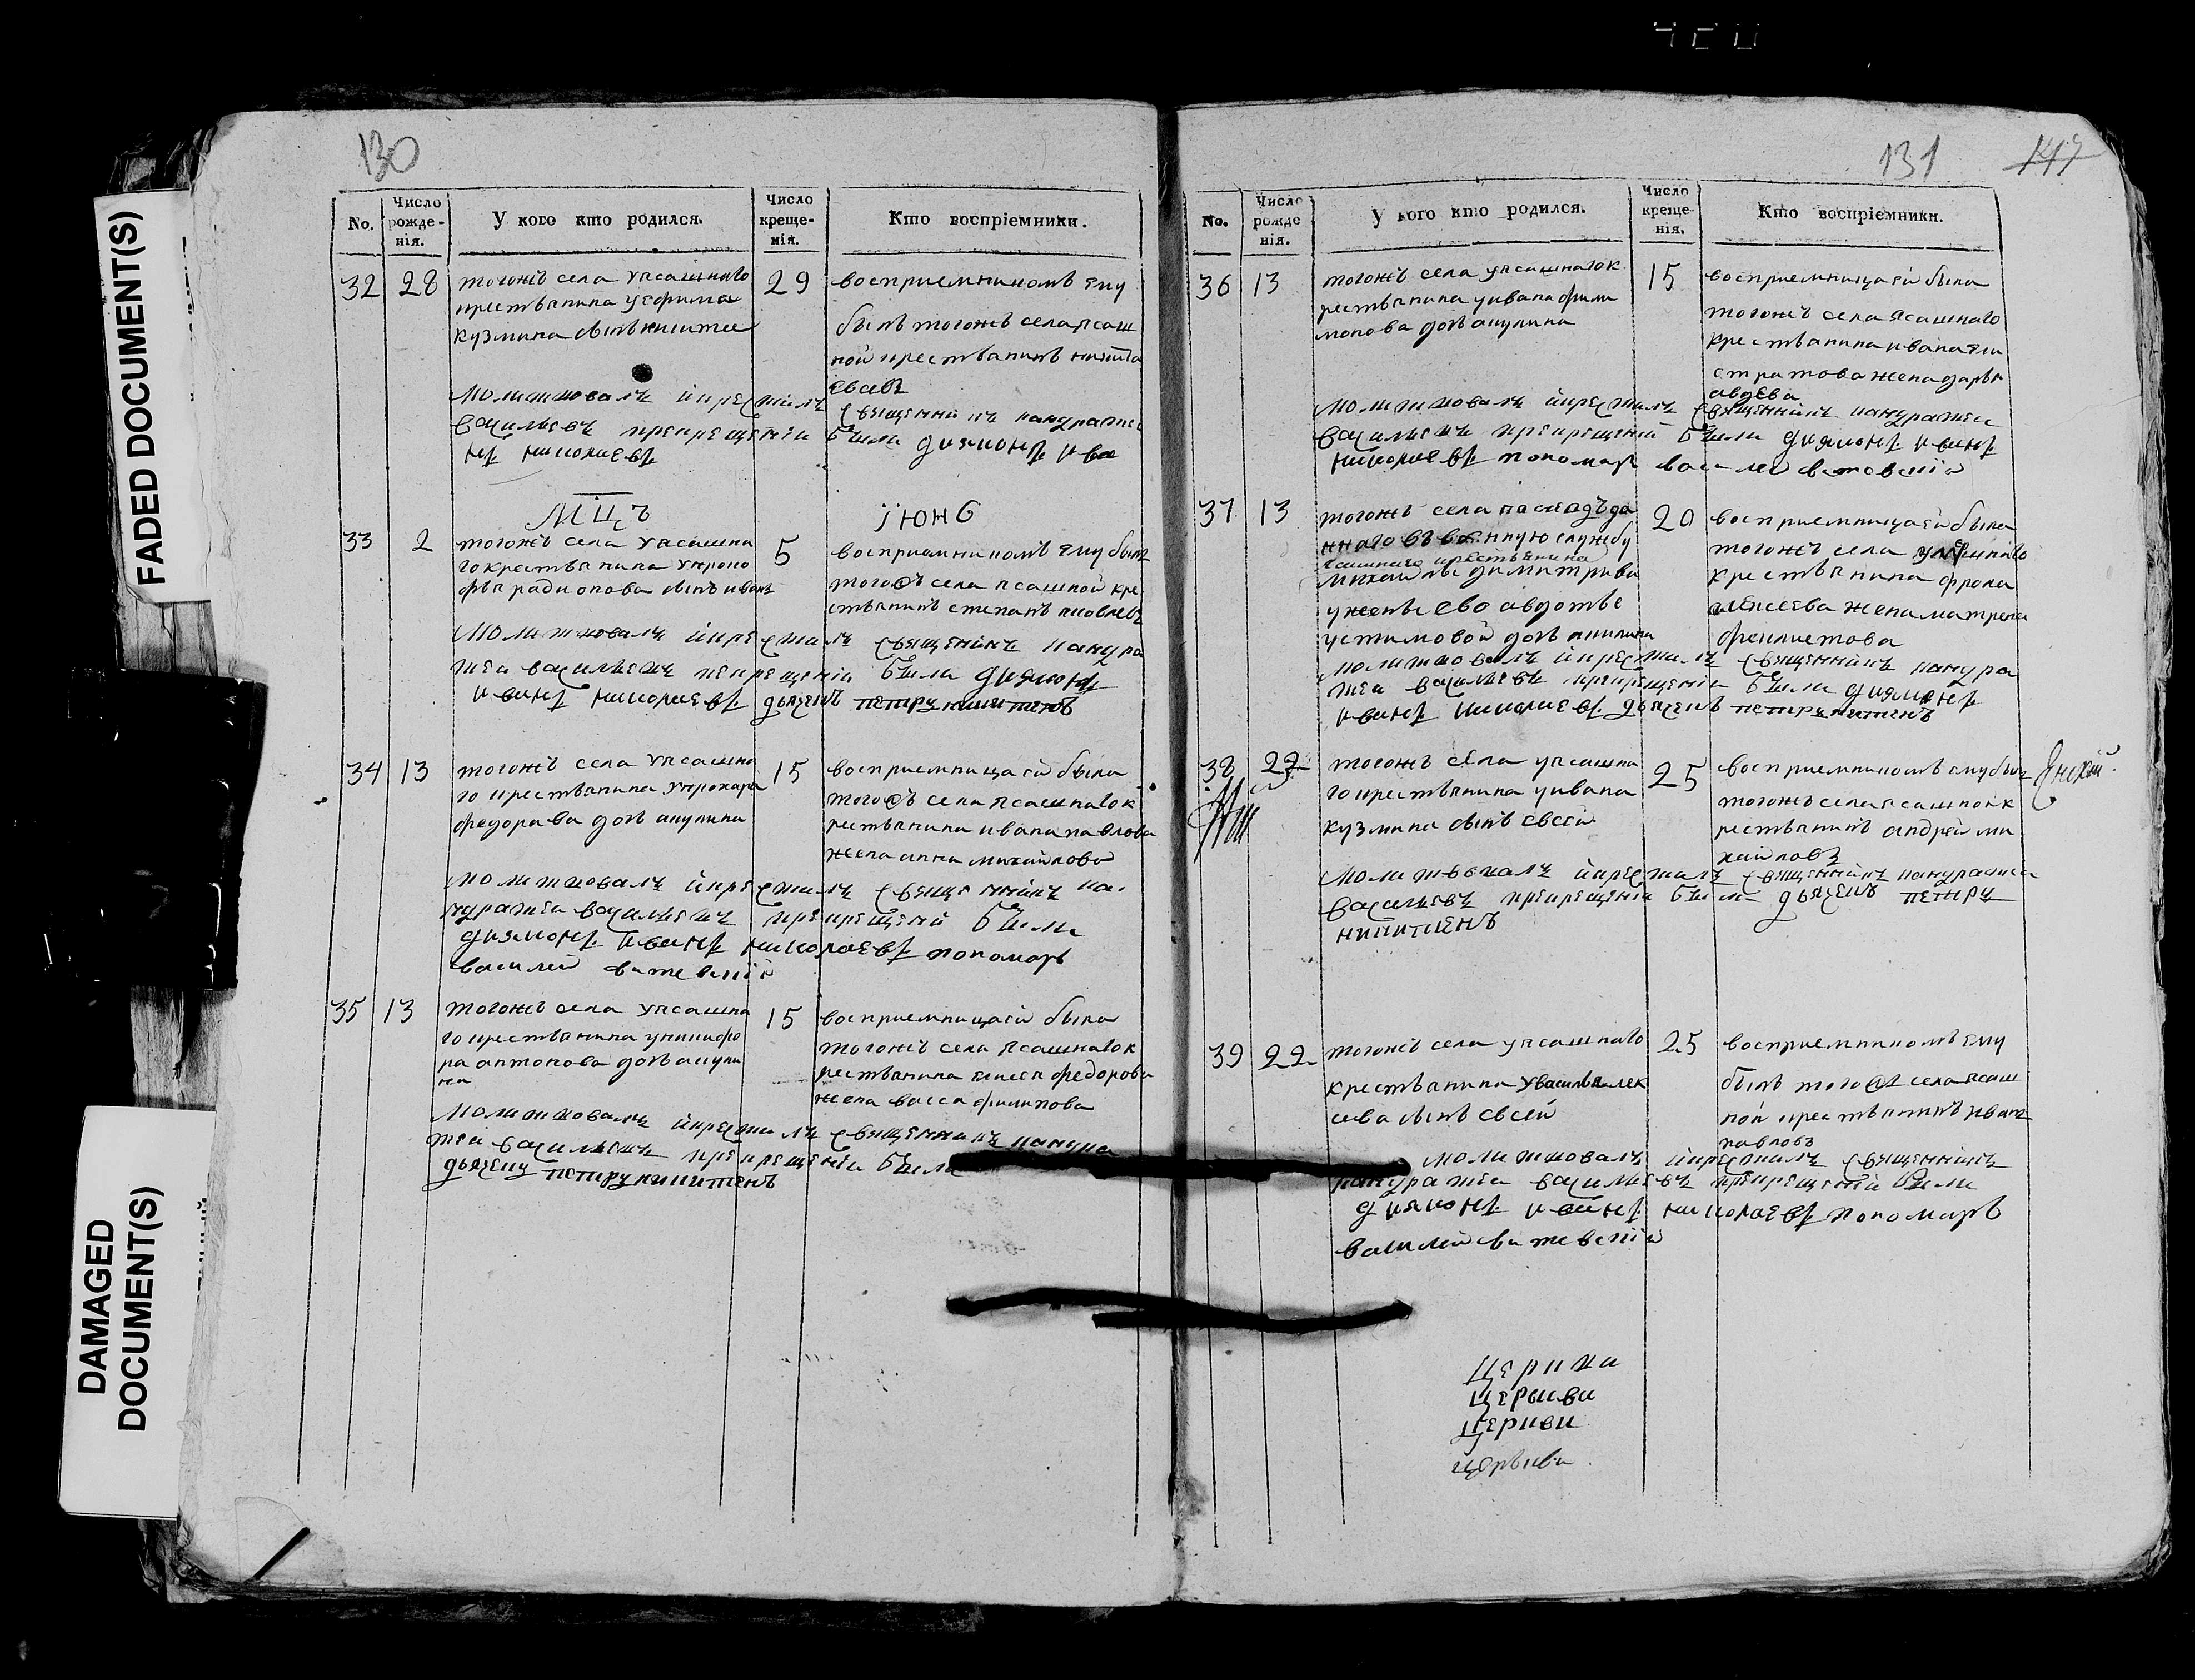 130
No.
Число рожде-нія.
У кого кто родился.
Число креще-нія.
Кто воспріемники.
32 28
тогожъ села уясашнаго
крестьянина уефима
кузмина сынъ никита
29
восприемникомъ ему
былъ тогожъ села ясаш
ной крестьянинъ никита
молитвовалъ и крестилъ священникъ кондратеи
васильевъ при крещении были дияконъ ива
нъ николаевъ
мцъ июнь
33 2
тогожъ села уясашна
го крестьянина упроко
фья радионова сынъ иванъ
5
восприемникомъ ему былъ
тогожъ села ясашной кре
стьянинъ степанъ яковлевъ
молитвовалъ и крестилъ священникъ кондра
теи васильевъ при крещении были диякон
иванъ николаевъ дьячекъ петръ никитинъ
34 13
тогожъ села уясашна
го крестьянина упрохара
федорава дочь акулина
15
восприемницаей была
тогожъ села ясашнагок
рестьянина ивана павлова
жена анна михайлова
молитвовалъ и крестилъ священникъ ко
ндратеи васильевъ при крещении были
диякон иванъ николаевъ пономарь
василей
35 13
тогожъ села уясашна
го крестьянина уникифо
ра антонова дочь акули
на
15
восприемницаей была
тогожъ села ясашнагок
рестьянина елисея федорова
жена васса филипова
молитвовалъ и крестилъ священникъ кондра
теи васильевъ при крещении были
дьячекъ петръ никитинъ
131
149
No.
Число рожде нія.
У кого кто родился.
Число креще-нія.
Кто воспріемники.
36 13
тогожъ села уясашнагок
рестьянина уивана фили
монова дочь акулина
15
восприемницаей была
тогожъ села ясашнаго
крестьянина ивана ели
стратова жена дарья
авдеева
молитвовалъ и крестилъ священникъ кондратеи
васильевъ при крещении были диякон иванъ
николаевъ пономарь василей
37 13
тогожъ села
ннаго въ военную службу
ясашнаго крестьянина
михайлы димитрива
ужены ево авдотье
устимовой дочь акилина
20
восприемницаей была
тогожъ села
крестьянина фрола
алексеева жена матрена
феклистова
молитвовалъ и крестилъ священникъ кондра
теи васильевъ при крещении были диякон
иванъ николаевъ дьячекъ петръ никитинъ
38 22
тогожъ села уясашна
го крестьянина уивана
кузмина сынъ евсей
25
восприемникомъ ему былъ
тогожъ села ясашнои к
рестьянинъ андрей ми
хайловъ
молитвовалъ и крестилъ священникъ кондратеи
васильевъ при крещении были дьячекъ петръ
никитинъ
39 22
тогожъ села уясашнаго
крестьянина увасилья алек
сева сынъ евсей
25
восприемникомъ ему
былъ тогожъ села ясаш
ной крестьянинъ иванъ
павловъ
молитвовалъ и крестилъ священникъ
кондратеи васильевъ при крещении были
диякон иванъ николаевъ пономарь
василей
церкви
церькви
церкви
церькви
FADED DOCUMENT(S)
DAMAGED
DOCUMENT(S)